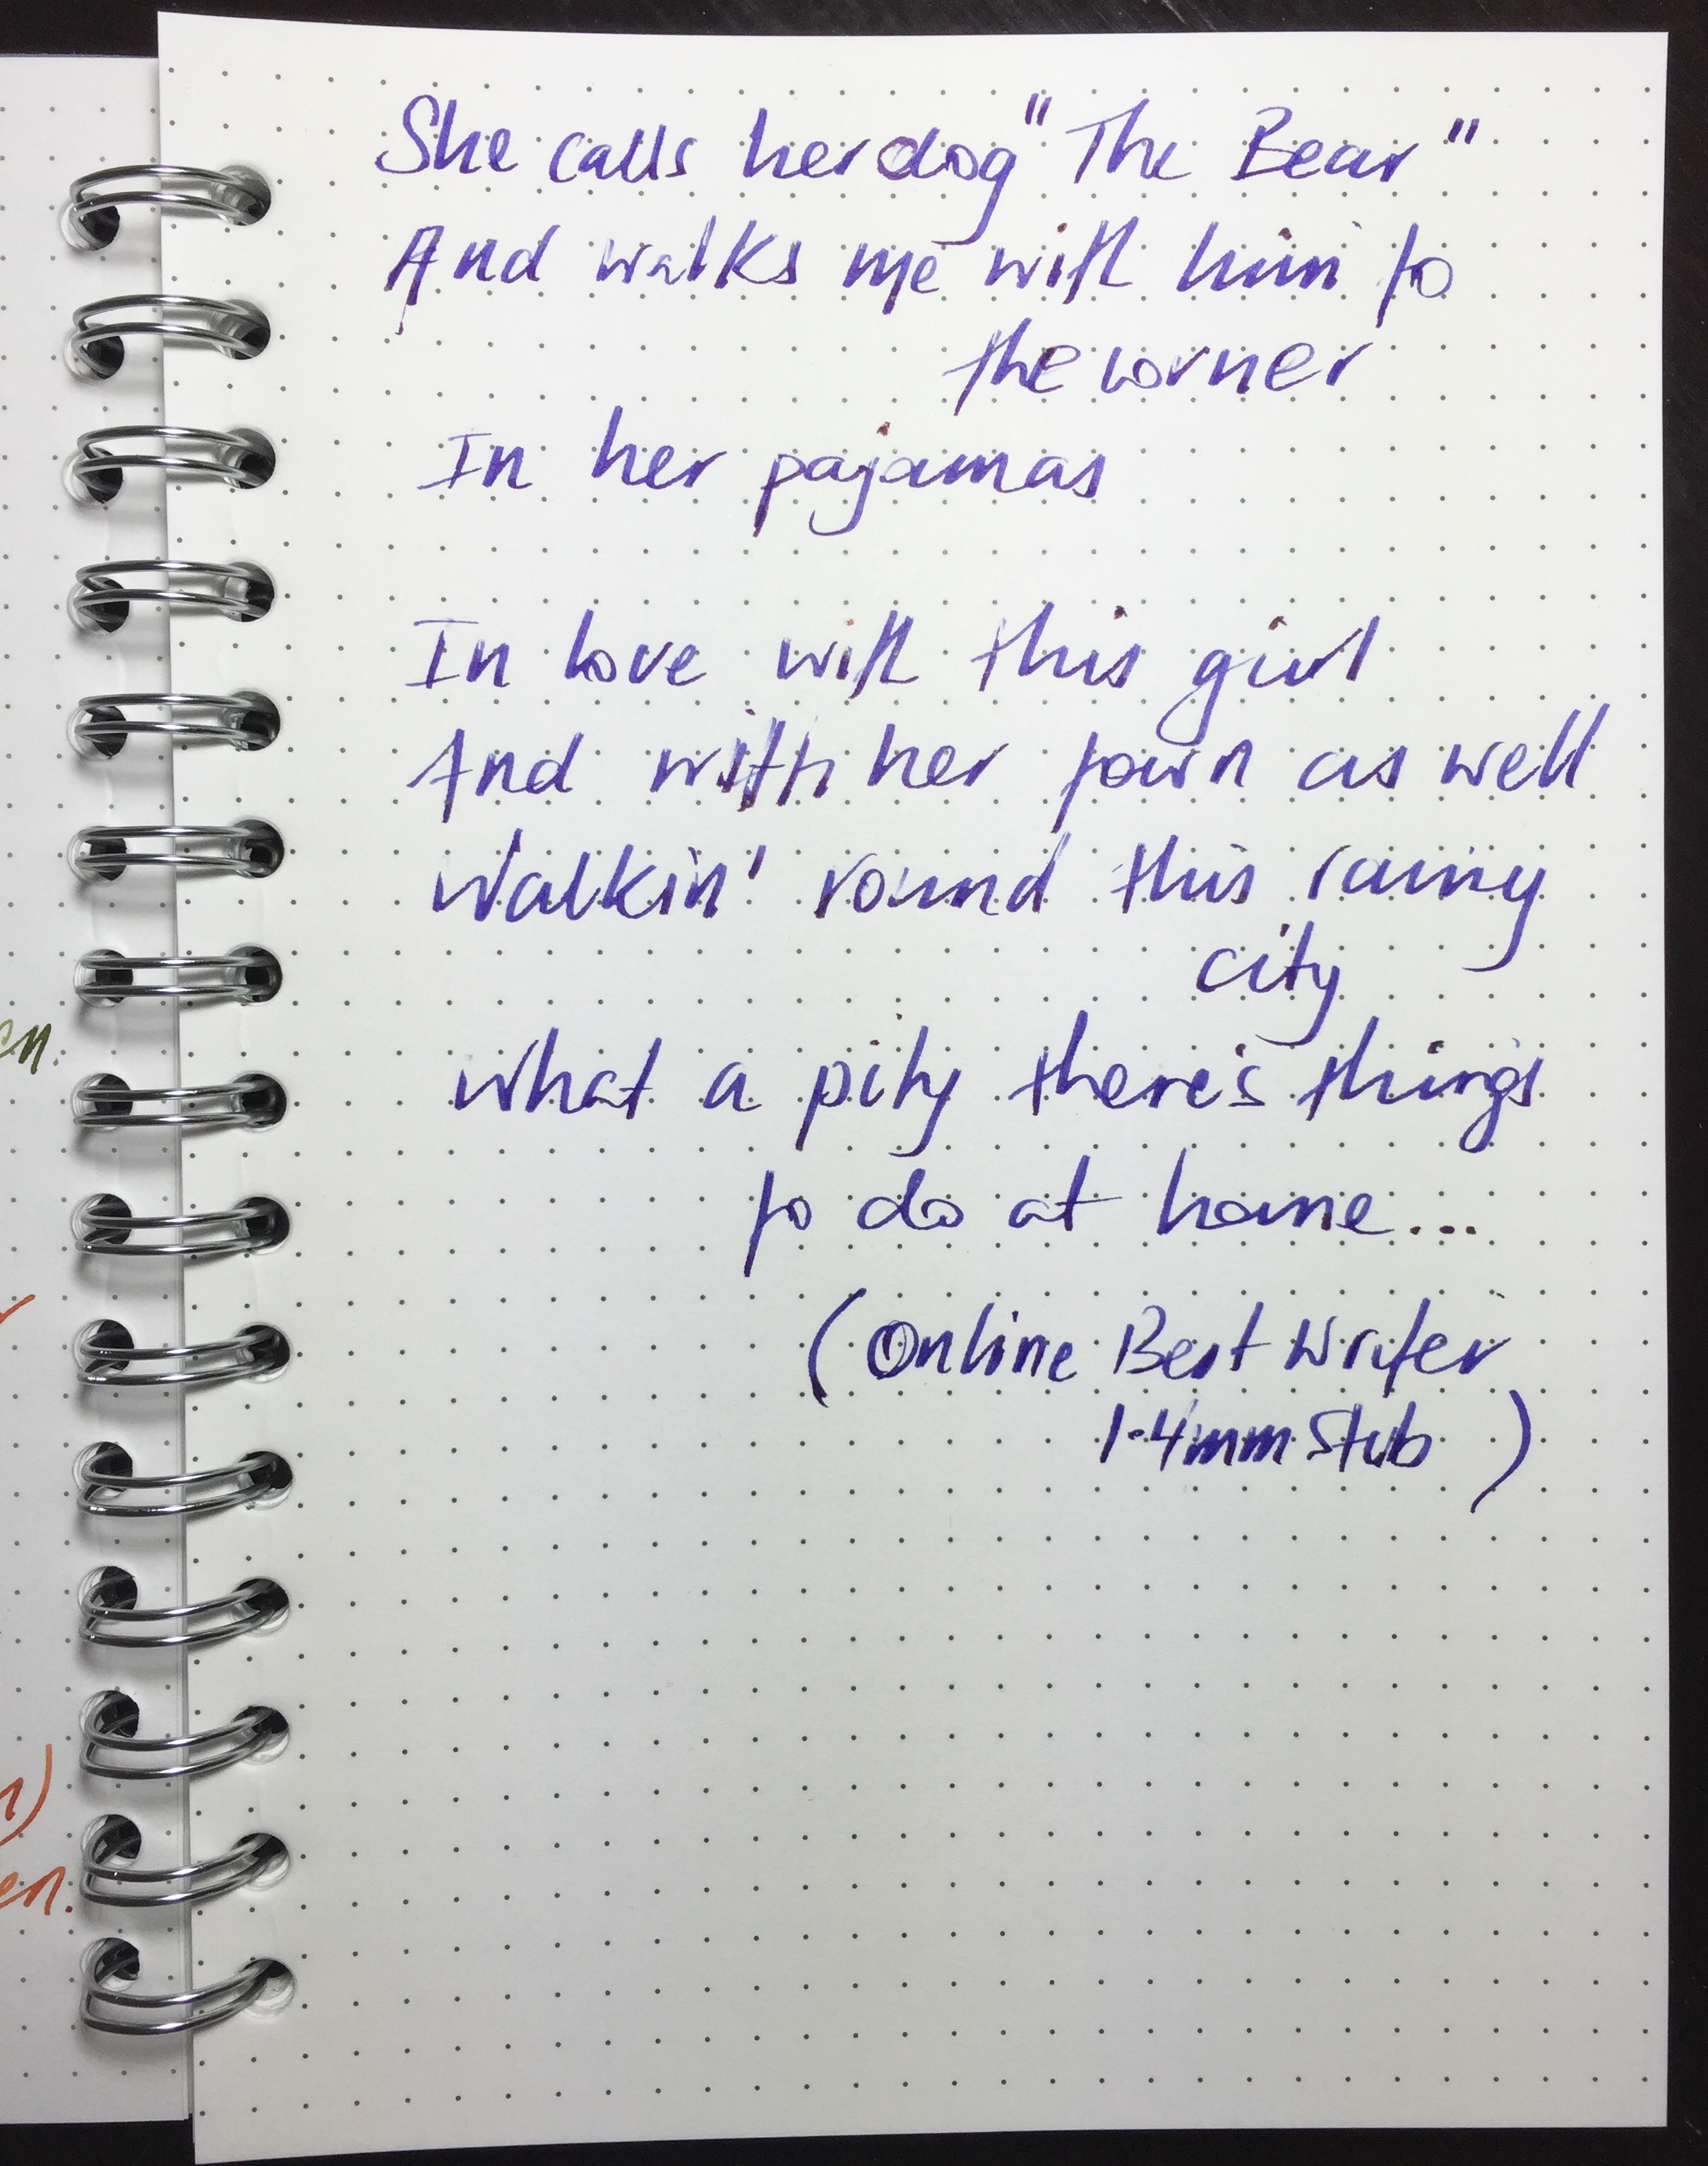 She calls her dog "The Bear"
And walks me with him to
the corner
In her pajamas
In love with this girl
And with her town as well
Walkin' round this rainy
city
What a pity there's things
to do at home...
(Online Best Writer
1.4mm Stub)
en.
n)
en.